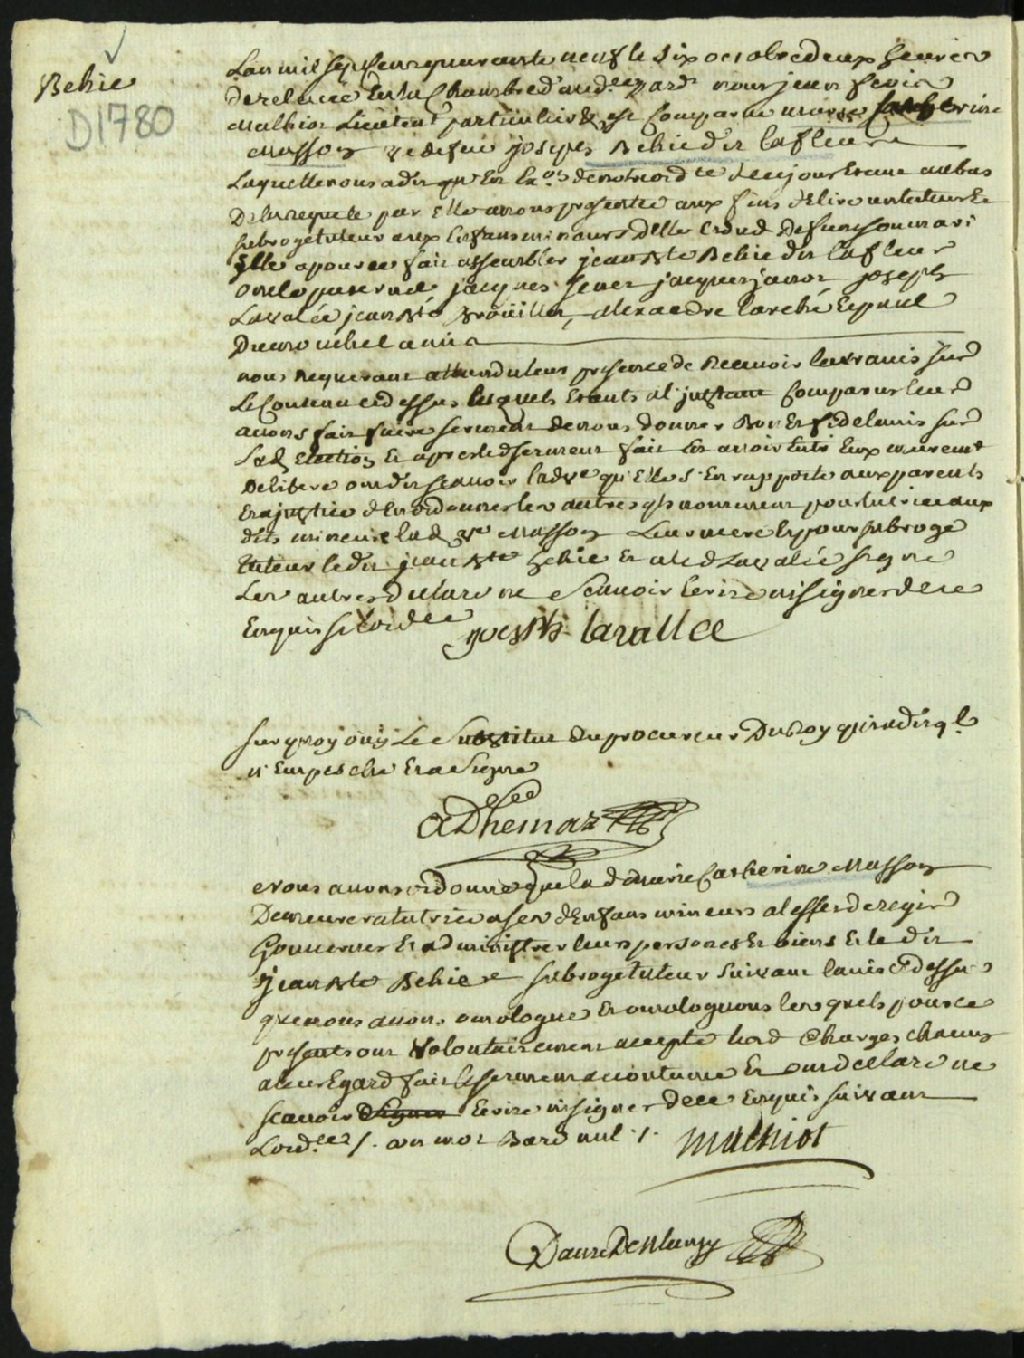 Behie
D1780
Lan mil sept cens quarante neuf le six octobre deux heures
de relevée En la Chambre d'aud.ce pard. nous jean fevre
Malhiot Lieutent particulier & est Comparue marie Catherine
Masson ve defeu joseph Behie dit lafleur
Laquelle nous a dit qu'En Exon denotre ord ce de cejour Etant aubas
De la requete par Elle anous presentée aux fins d'Elire un tuteur Et
subrogé tuteur aux Enfans mineurs d'elle Et dud defunt son mari
Elle a pour ce fait assembler jean Bte Behie dit lafleur
oncle paternel jacques jacques janot joseph
Lavalée jean Bte Drouillier, alexandre larché Epaul
Dumouchel amis
nous Requerant attendu leur presence de Recevoir leur avis sur
Le Contenu cidessus lesquels Etants al'jnstant Comparus leur
avons fait faire serment de nous donner Bon Et fidel avis sur
lad Election Et apres led serment fait Et avoir Entre Eux murement
Deliberé ont dit scavoir lad ve qu'Elle s'En rapporte aux parents
Et a justice d'En ordonner les autres qls nomment pour tutrice aux
dits mineurs lad ve Masson Leur mere Et pour subrogé
tuteur ledit jean Bte Behie Et a led Lavalée signé
Les autres déclaré ne Scavoir Ecrire ni signer de ce
Enquis s.t lordce
joseph lavallee
sur quoy ouy Le Substitut du procureur Du Roy qui a dit ql
n'Empesche Et a Signé
Adhemar
Nous avons ordonné que lad Marie Catherine Masson
Demeurera tutrice ases d Enfans mineurs al'effet de regir
Gouverner Et administrer leurs personnes Et biens Et le dit
jean Bte Behie subrogé tuteur suivant l'avis cydessus
que nous avons omologué Et omologuons lesquels pour ce
presents ont Volontairement accepté lesd Charges chacun
aleur Egard fait le serment accoutumé Et ont déclaré ne
scavoir Ecrire ni signer de ce Enquis suivant
Lord.ce /. un mot Baré nul ./.
Malhiot
Danré De Blanzy